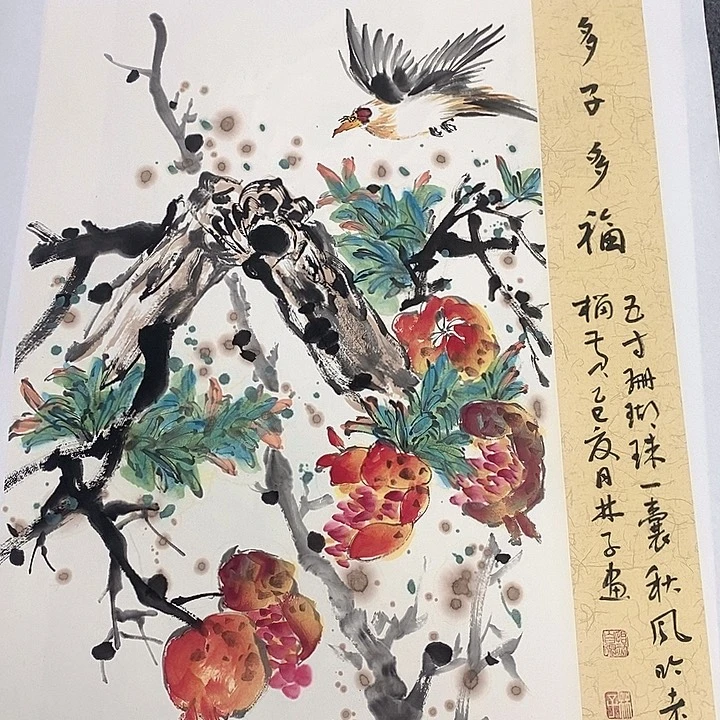 多子多福
五寸珊瑚珠一囊秋风吹老
榴黄乙巳夏月林子画